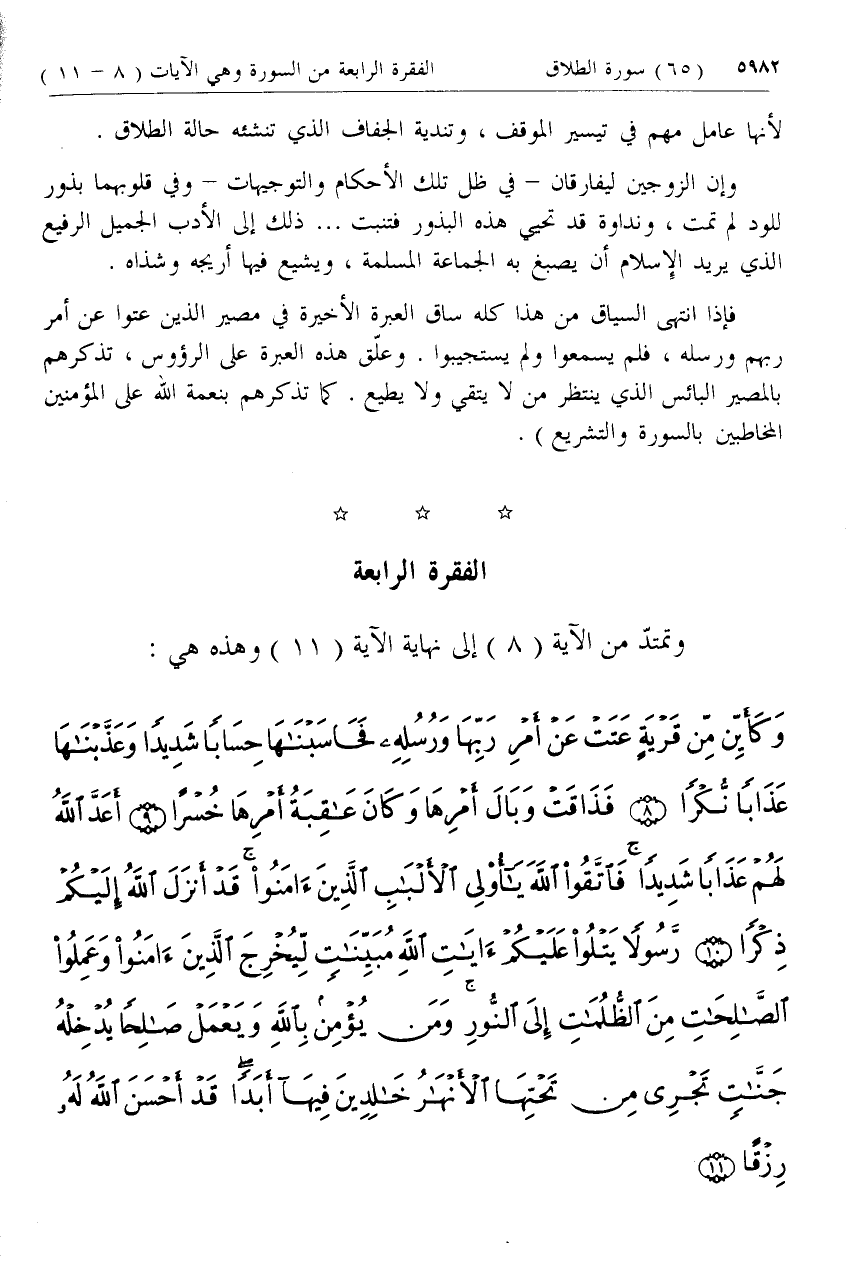 ٥٩٨٢ (٦٥) سورة الطلاق الفقرة الرابعة من السورة وهي الآيات ( ٨ – ١١ )
لأنها عامل مهم في تيسير الموقف ، وتندية الجفاف الذي تنشئه حالة الطلاق .
وإن الزوجين ليفارقان – في ظل تلك الأحكام والتوجيهات – وفي قلوبهما بذور
للود لم تمت ، ونداوة قد تحيي هذه البذور فتنبت ... ذلك إلى الأدب الجميل الرفيع
الذي يريد الإسلام أن يصبغ به الجماعة المسلمة ، ويشيع فيها أريجه وشذاه .
فإذا انتهى السياق من هذا كله ساق العبرة الأخيرة في مصير الذين عتوا عن أمر
ربهم ورسله ، فلم يسمعوا ولم يستجيبوا . وعلّق هذه العبرة على الرؤوس ، تذكرهم
بالمصير البائس الذي ينتظر من لا يتقي ولا يطيع . كما تذكرهم بنعمة الله على المؤمنين
المخاطبين بالسورة والتشريع ) .
☆ ☆ ☆
الفقرة الرابعة
وتمتدّ من الآية ( ٨ ) إلى نهاية الآية ( ١١ ) وهذه هي :
وَكَأَيِّن مِّن قَرْيَةٍ عَتَتْ عَنْ أَمْرِ رَبِّهَا وَرُسُلِهِۦ فَحَاسَبْنَـٰهَا حِسَابًا شَدِيدًا وَعَذَّبْنَـٰهَا
عَذَابًا نُّكْرًا ﴿٨﴾ فَذَاقَتْ وَبَالَ أَمْرِهَا وَكَانَ عَـٰقِبَةُ أَمْرِهَا خُسْرًا ﴿٩﴾ أَعَدَّ ٱللَّهُ
لَهُمْ عَذَابًا شَدِيدًا ۖ فَٱتَّقُوا۟ ٱللَّهَ يَـٰٓأُو۟لِى ٱلْأَلْبَـٰبِ ٱلَّذِينَ ءَامَنُوا۟ ۚ قَدْ أَنزَلَ ٱللَّهُ إِلَيْكُمْ
ذِكْرًا ﴿١٠﴾ رَّسُولًا يَتْلُوا۟ عَلَيْكُمْ ءَايَـٰتِ ٱللَّهِ مُبَيِّنَـٰتٍ لِّيُخْرِجَ ٱلَّذِينَ ءَامَنُوا۟ وَعَمِلُوا۟
ٱلصَّـٰلِحَـٰتِ مِنَ ٱلظُّلُمَـٰتِ إِلَى ٱلنُّورِ ۚ وَمَن يُؤْمِنۢ بِٱللَّهِ وَيَعْمَلْ صَـٰلِحًا يُدْخِلْهُ
جَنَّـٰتٍ تَجْرِى مِن تَحْتِهَا ٱلْأَنْهَـٰرُ خَـٰلِدِينَ فِيهَآ أَبَدًا ۖ قَدْ أَحْسَنَ ٱللَّهُ لَهُۥ
رِزْقًا ﴿١١﴾